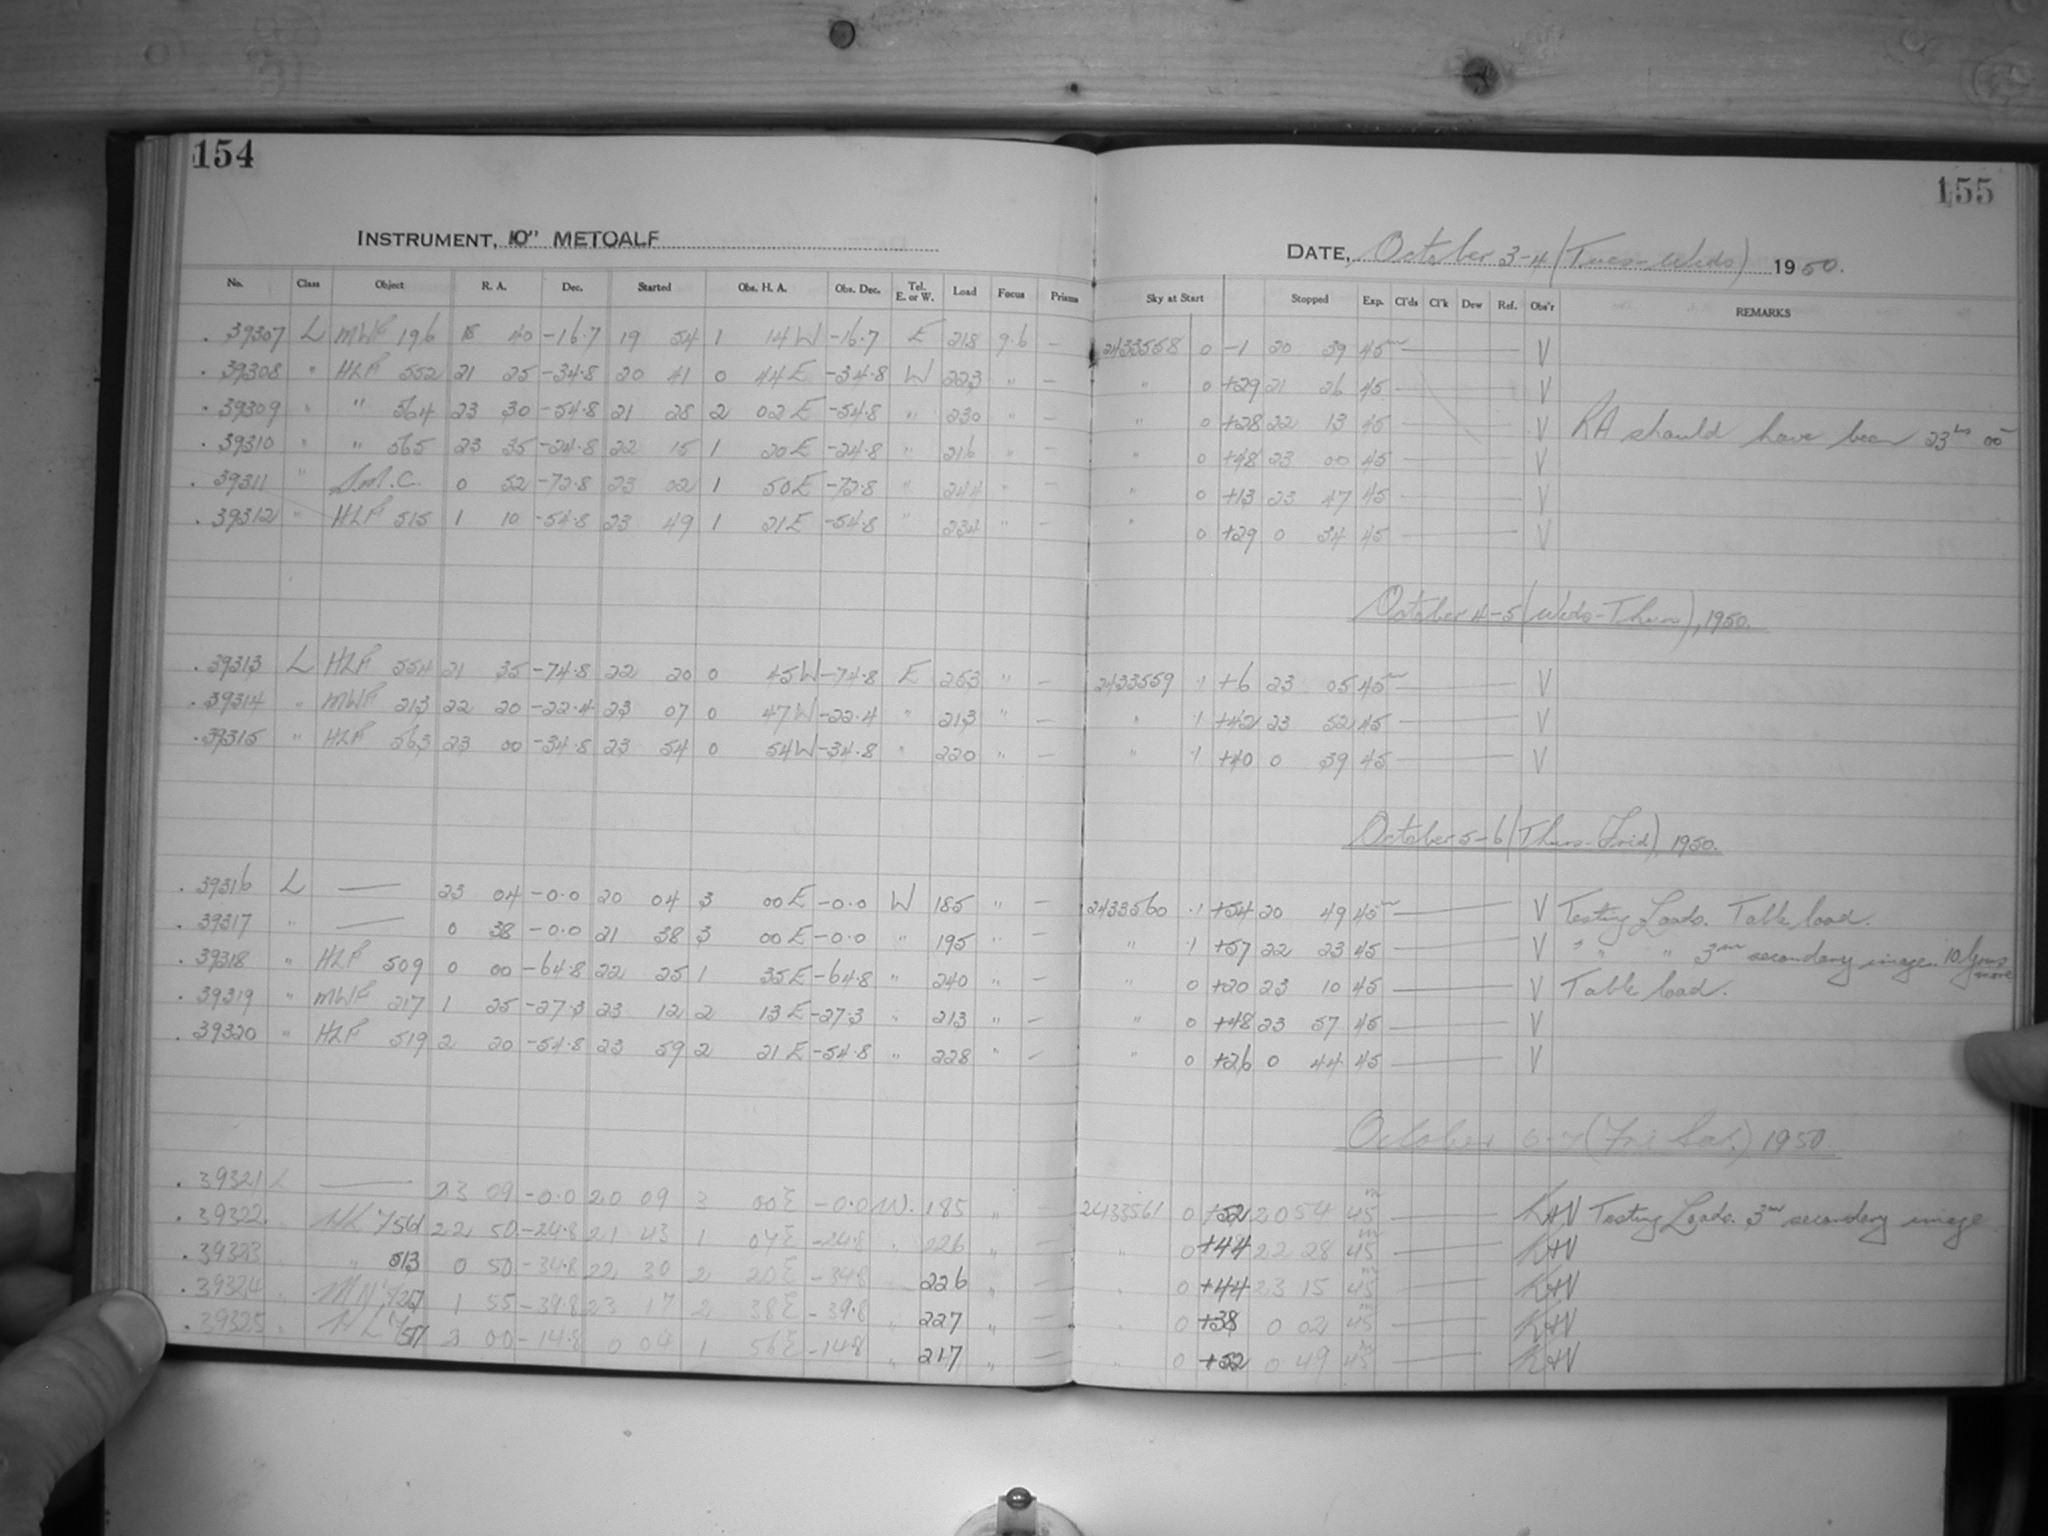 154
INSTRUMENT, 10" METCALF
No. Class Object R. A. Dec. Started Obs. H. A. Obs. Dec. Tel. E. or W. Load Focus Prisms
39307 L MWF 196 18 40 -16.7 19 54 1 14 W -16.7 E 218 9.6 —
39308 " HLF 552 21 25 -34.8 20 41 0 44 E -34.8 W 223 " —
39309 " " 564 23 30 -54.8 21 28 2 02 E -54.8 " 230 " —
39310 " " 565 23 35 -24.8 22 15 1 20 E -24.8 " 216 " —
39311 " S.M.C. 0 52 -72.8 23 02 1 50 E -72.8 " 244 " —
39312 " HLF 515 1 10 -54.8 23 49 1 21 E -54.8 " 234 " —
39313 L HLF 554 21 35 -74.8 22 20 0 45 W -74.8 E 253 " —
39314 " MWF 213 22 20 -22.4 23 07 0 47 W -22.4 " 213 " —
39315 " HLF 563 23 00 -34.8 23 54 0 54 W -34.8 " 220 " —
39316 L — 23 04 -0.0 20 04 3 00 E -0.0 W 185 " —
39317 " — 0 38 -0.0 21 38 3 00 E -0.0 " 195 " —
39318 " HLF 509 0 00 -64.8 22 25 1 35 E -64.8 " 240 " —
39319 " MWF 217 1 25 -27.3 23 12 2 13 E -27.3 " 213 " —
39320 " HLF 519 2 20 -54.8 23 59 2 21 E -54.8 " 228 " —
39321 L — 23 09 -0.0 20 09 3 00 E -0.0 W. 185 " —
39322 " HLF 561 22 50 -24.8 21 43 1 07 E -24.8 " 226 " —
39323 " " 513 0 50 -34.8 22 30 2 20 E -34.8 " 226 " —
39324 " MWF 1 55 -39.8 23 17 2 38 E -39.8 " 227 " —
39325 " HLF 517 2 00 -14.8 0 04 1 56 E -14.8 " 217 " —
155
DATE, October 3-4 (Tues-Weds) 1950.
Sky at Start Stopped Exp. Cl'ds Cl'k Dew Ref. Obs'r REMARKS
2433558 0 -1 20 39 45m — V
" 0 +29 21 26 45 — V
" 0 +28 22 13 45 — V RA should have been 23hrs 00m
" 0 +48 23 00 45 — V
" 0 +13 23 47 45 — V
" 0 +29 0 34 45 — V
October 4-5 (Weds-Thurs), 1950.
2433559 .1 +6 23 05 45m — V
" .1 +42 23 52 45 — V
" .1 +40 0 39 45 — V
October 5-6 (Thurs-Frid), 1950.
2433560 .1 +54 20 49 45m — V Testing Loads. Table load.
" .1 +57 22 23 45 — V " " " 3m secondary image. 10 more
" 0 +20 23 10 45 — V Table load.
" 0 +48 23 57 45 — V
" 0 +26 0 44 45 — V
October 6-7 (Fri Sat.) 1950.
2433561 0 +52 20 54 45m — K+V Testing Loads. 3m secondary image
" 0 +44 22 28 45m — K+V
" 0 +44 23 15 45m — K+V
" 0 +38 0 02 45m — K+V
" 0 +52 0 49 45m — K+V